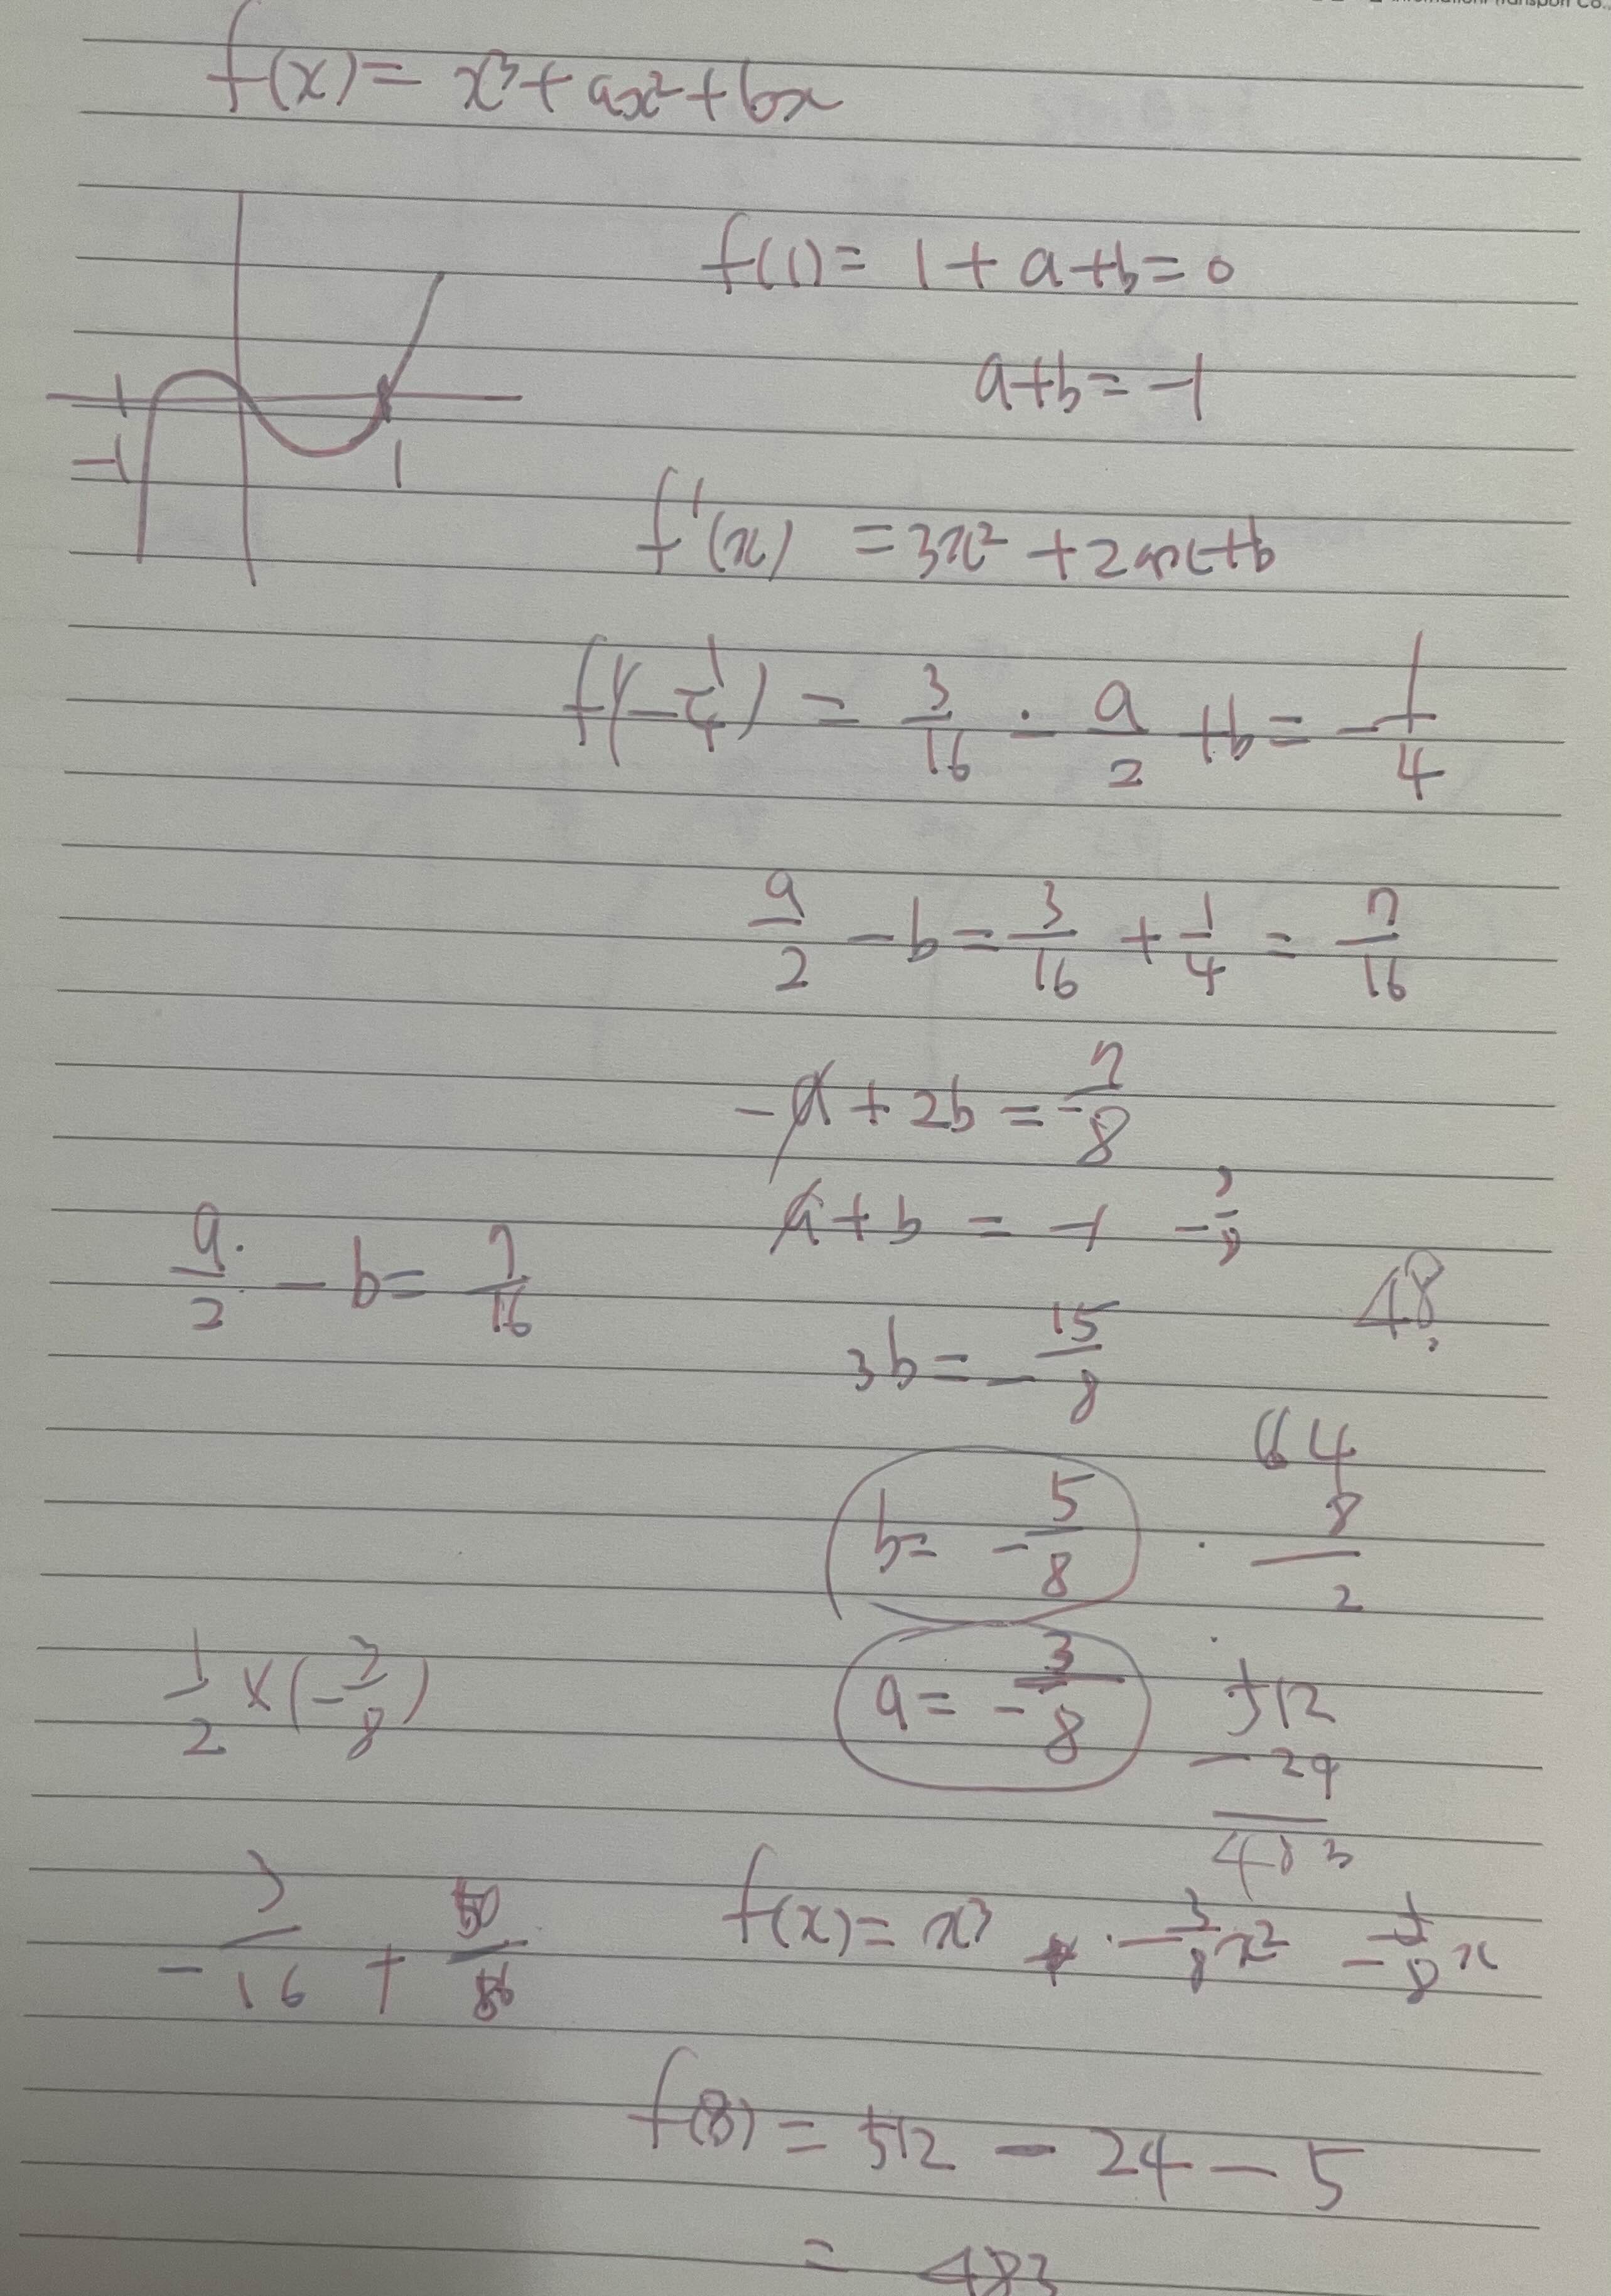 f(x) = x³ + ax² + bx
f(1) = 1 + a + b = 0
a + b = -1
-1
1
f'(x) = 3x² + 2ax + b
f'(-1/4) = 3/16 - a/2 + b = -1/4
a/2 - b = 3/16 + 1/4 = 7/16
-a + 2b = -7/8
a + b = -1
a/2 - b = 7/16
48
3b = -15/8
64
8
2
b = -5/8
1/2 × (-3/8)
a = -3/8
512
- 29
483
-3/16 +
f(x) = x³ - 3/8 x² - 5/8 x
f(8) = 512 - 24 - 5
= 483